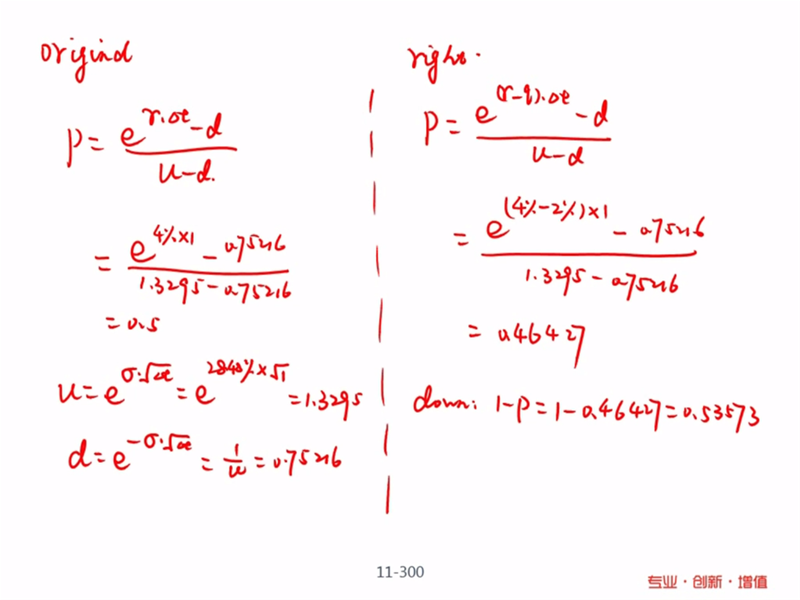 original
p = (e^(r·Δt) - d) / (u - d)
= (e^(4%×1) - 0.75216) / (1.3295 - 0.75216)
= 0.5
u = e^(σ·√Δt) = e^(28.48%×√1) = 1.3295
d = e^(-σ·√Δt) = 1/u = 0.75216
right.
p = (e^((r-q)·Δt) - d) / (u - d)
= (e^((4%-2%)×1) - 0.75216) / (1.3295 - 0.75216)
= 0.46427
down: 1-p = 1-0.46427 = 0.53573
11-300
专业·创新·增值